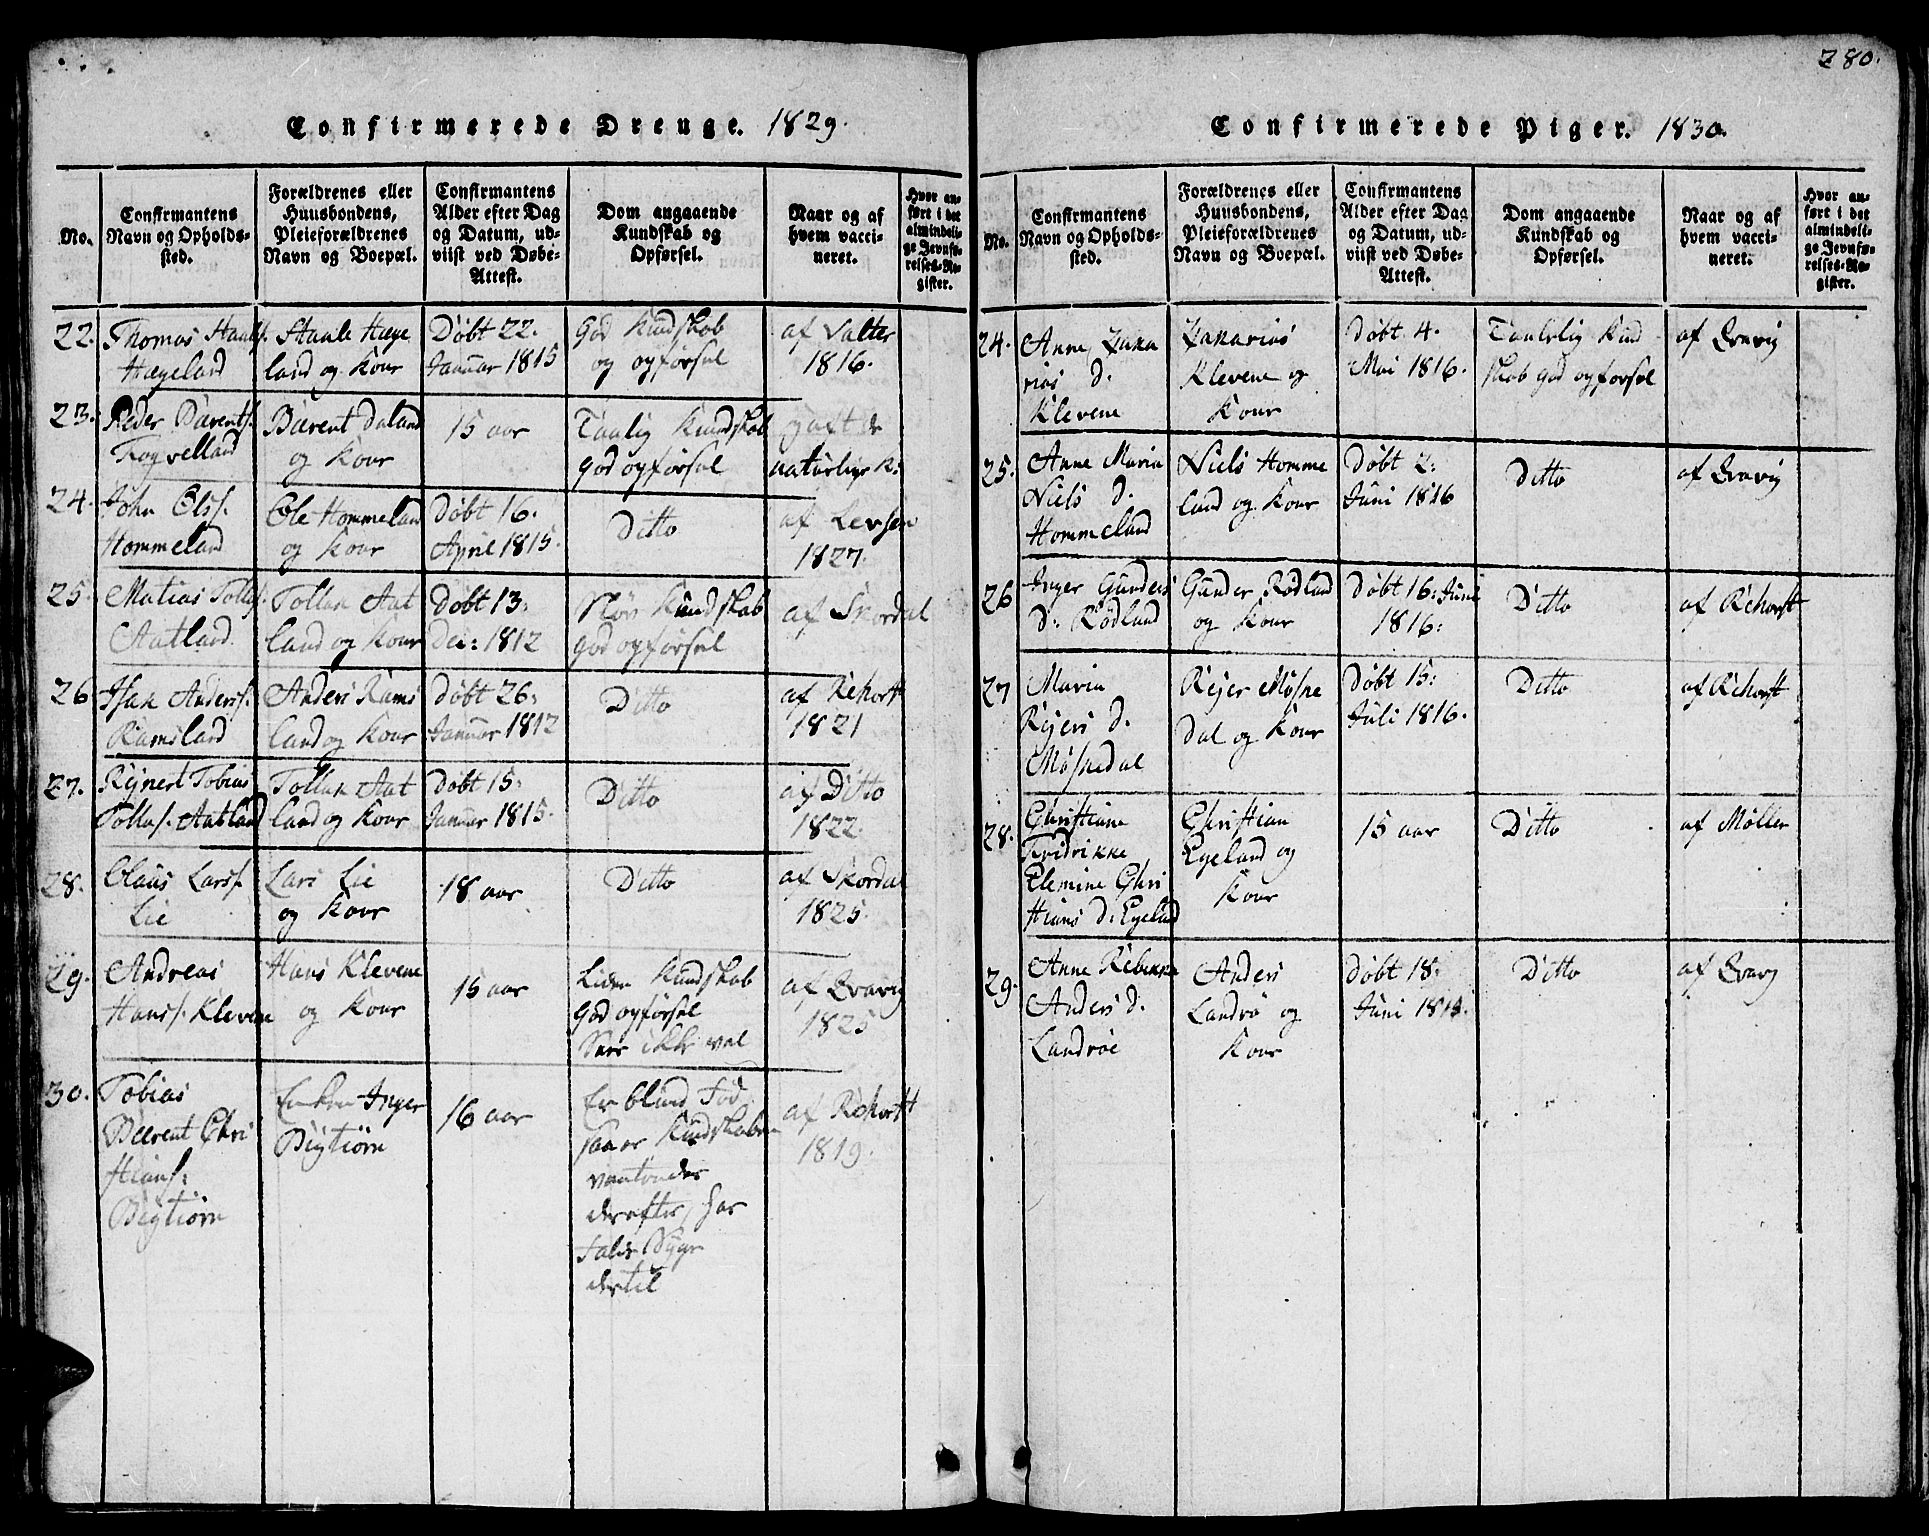 280.
Confirmerede Drenge. 1829.
No.
Confirmantens
Navn og Opholds-
sted.
Forældrenes eller
Huusbondens,
Pleieforældrenes
Navn og Boepæl.
Confirmantens
Alder efter Dag
og Datum, ud-
viist ved Døbe-
Attest.
Dom angaaende
Kundskab og
Opførsel.
Naar og af
hvem vacci-
neret.
Hvor an-
ført i det
almindeli-
ge Jevnfø-
relses-Re-
gister.
22.
Thomas Staales.
Hægeland
Staale Hæge
land og Kone
Døbt 22.
Januar 1815
God Kundskab
og opførsel
af Salter
1816.
23.
Peder Bærents.
Fogvelland
Bærent Daland
og Kone
15 aar
Taalig Kundskab
God opførsel
haft de
naturlige K:
24.
John Ols.
Hommeland
Ole Hommeland
og Kone
Døbt 16.
April 1815.
Ditto
af Levsen
1827.
25.
Matias Tollas.
Aatland
Tollak Aat
land og Kone
Døbt 13:
Dec: 1812
Sløv Kundskab
God opførsel
af Skordal
26
Isak Anders.
Ramsland
Anders Rams
land og Kone
Døbt 26:
Januar 1812
Ditto
af Rehorst
1821
27.
Rejnert Tobias
Tollas. Aatland
Tollak Aat
land og Kone
Døbt 15:
Januar 1815.
Ditto
af Ditto
1822.
28.
Claus Lars.
Lie
Lars Lie
og Kone
18 aar
Ditto
af Skordal
1825.
29.
Andreas
Hans. Klevene
Hans Klevene
og Kone
15 aar
Liden Kundskab
God opførsel
Seer ikke vel
af Qvavig
1825
30.
Tobias
Beerent Chri
stians:
Bigtiørn
Enken Inger
Bigtiørn
16 aar
Er blind Fød
saa er Kundskaben
derefter, har
dertil
af Rehorst
1819.
Confirmerede Piger. 1830.
No.
Confirmantens
Navn og Opholds-
sted.
Forældrenes eller
Huusbondens,
Pleieforældrenes
Navn og Boepæl.
Confirmantens
Alder efter Dag
og Datum, ud-
viist ved Døbe-
Attest.
Dom angaaende
Kundskab og
Opførsel.
Naar og af
hvem vacci-
neret.
Hvor an-
ført i det
almindeli-
ge Jevnfø-
relses-Re-
gister.
24.
Anne Zaka
rias D.
Klevene
Zakarias
Klevene og
Kone
Døbt 4.
Mai 1816.
Taalelig Kund
skab god opførsel
af Qvavig
25.
Anne Maria
Niels D.
Hommeland
Niels Homme
land og Kone
Døbt 2:
Juni 1816
Ditto
af Qvavig
26
Inger Gunders
D. Rødland
Gunder Rødland
og Kone
Døbt 16: Juni
1816:
Ditto
af Rehorst
27
Maria
Rejers D.
Møsnedal
Rejer Møsne
dal og Kone
Døbt 15:
Juli 1816.
Ditto
af Rehorst
28.
Christiane
Fridrikke
Elemine Chri
stians D: Egeland
Christian
Egeland og
Kone
15 aar
Ditto
af Møller
29.
Anne Rebekke
Anders D.
Landrøe
Anders
Landrø og
Kone
Døbt 18:
Juni 1815.
Ditto
af Qvavig